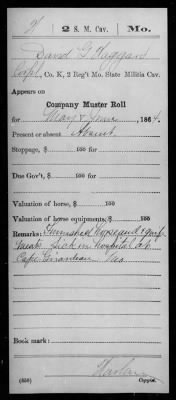 H | 2 S. M. Cav. | Mo.
David G. Haggard
Capt., Co. K, 2 Reg't Mo. State Militia Cav.
Appears on
Company Muster Roll
for May & June, 1864.
Present or absent Absent.
Stoppage, $ 100 for
Due Gov't, $ 100 for
Valuation of horse, $ 100
Valuation of horse equipments, $ 100
Remarks: Furnished horse and equip
ments Sick in Hospital at
Cape Girardeau Mo
Book mark:
Harlan
(359) Copyist.